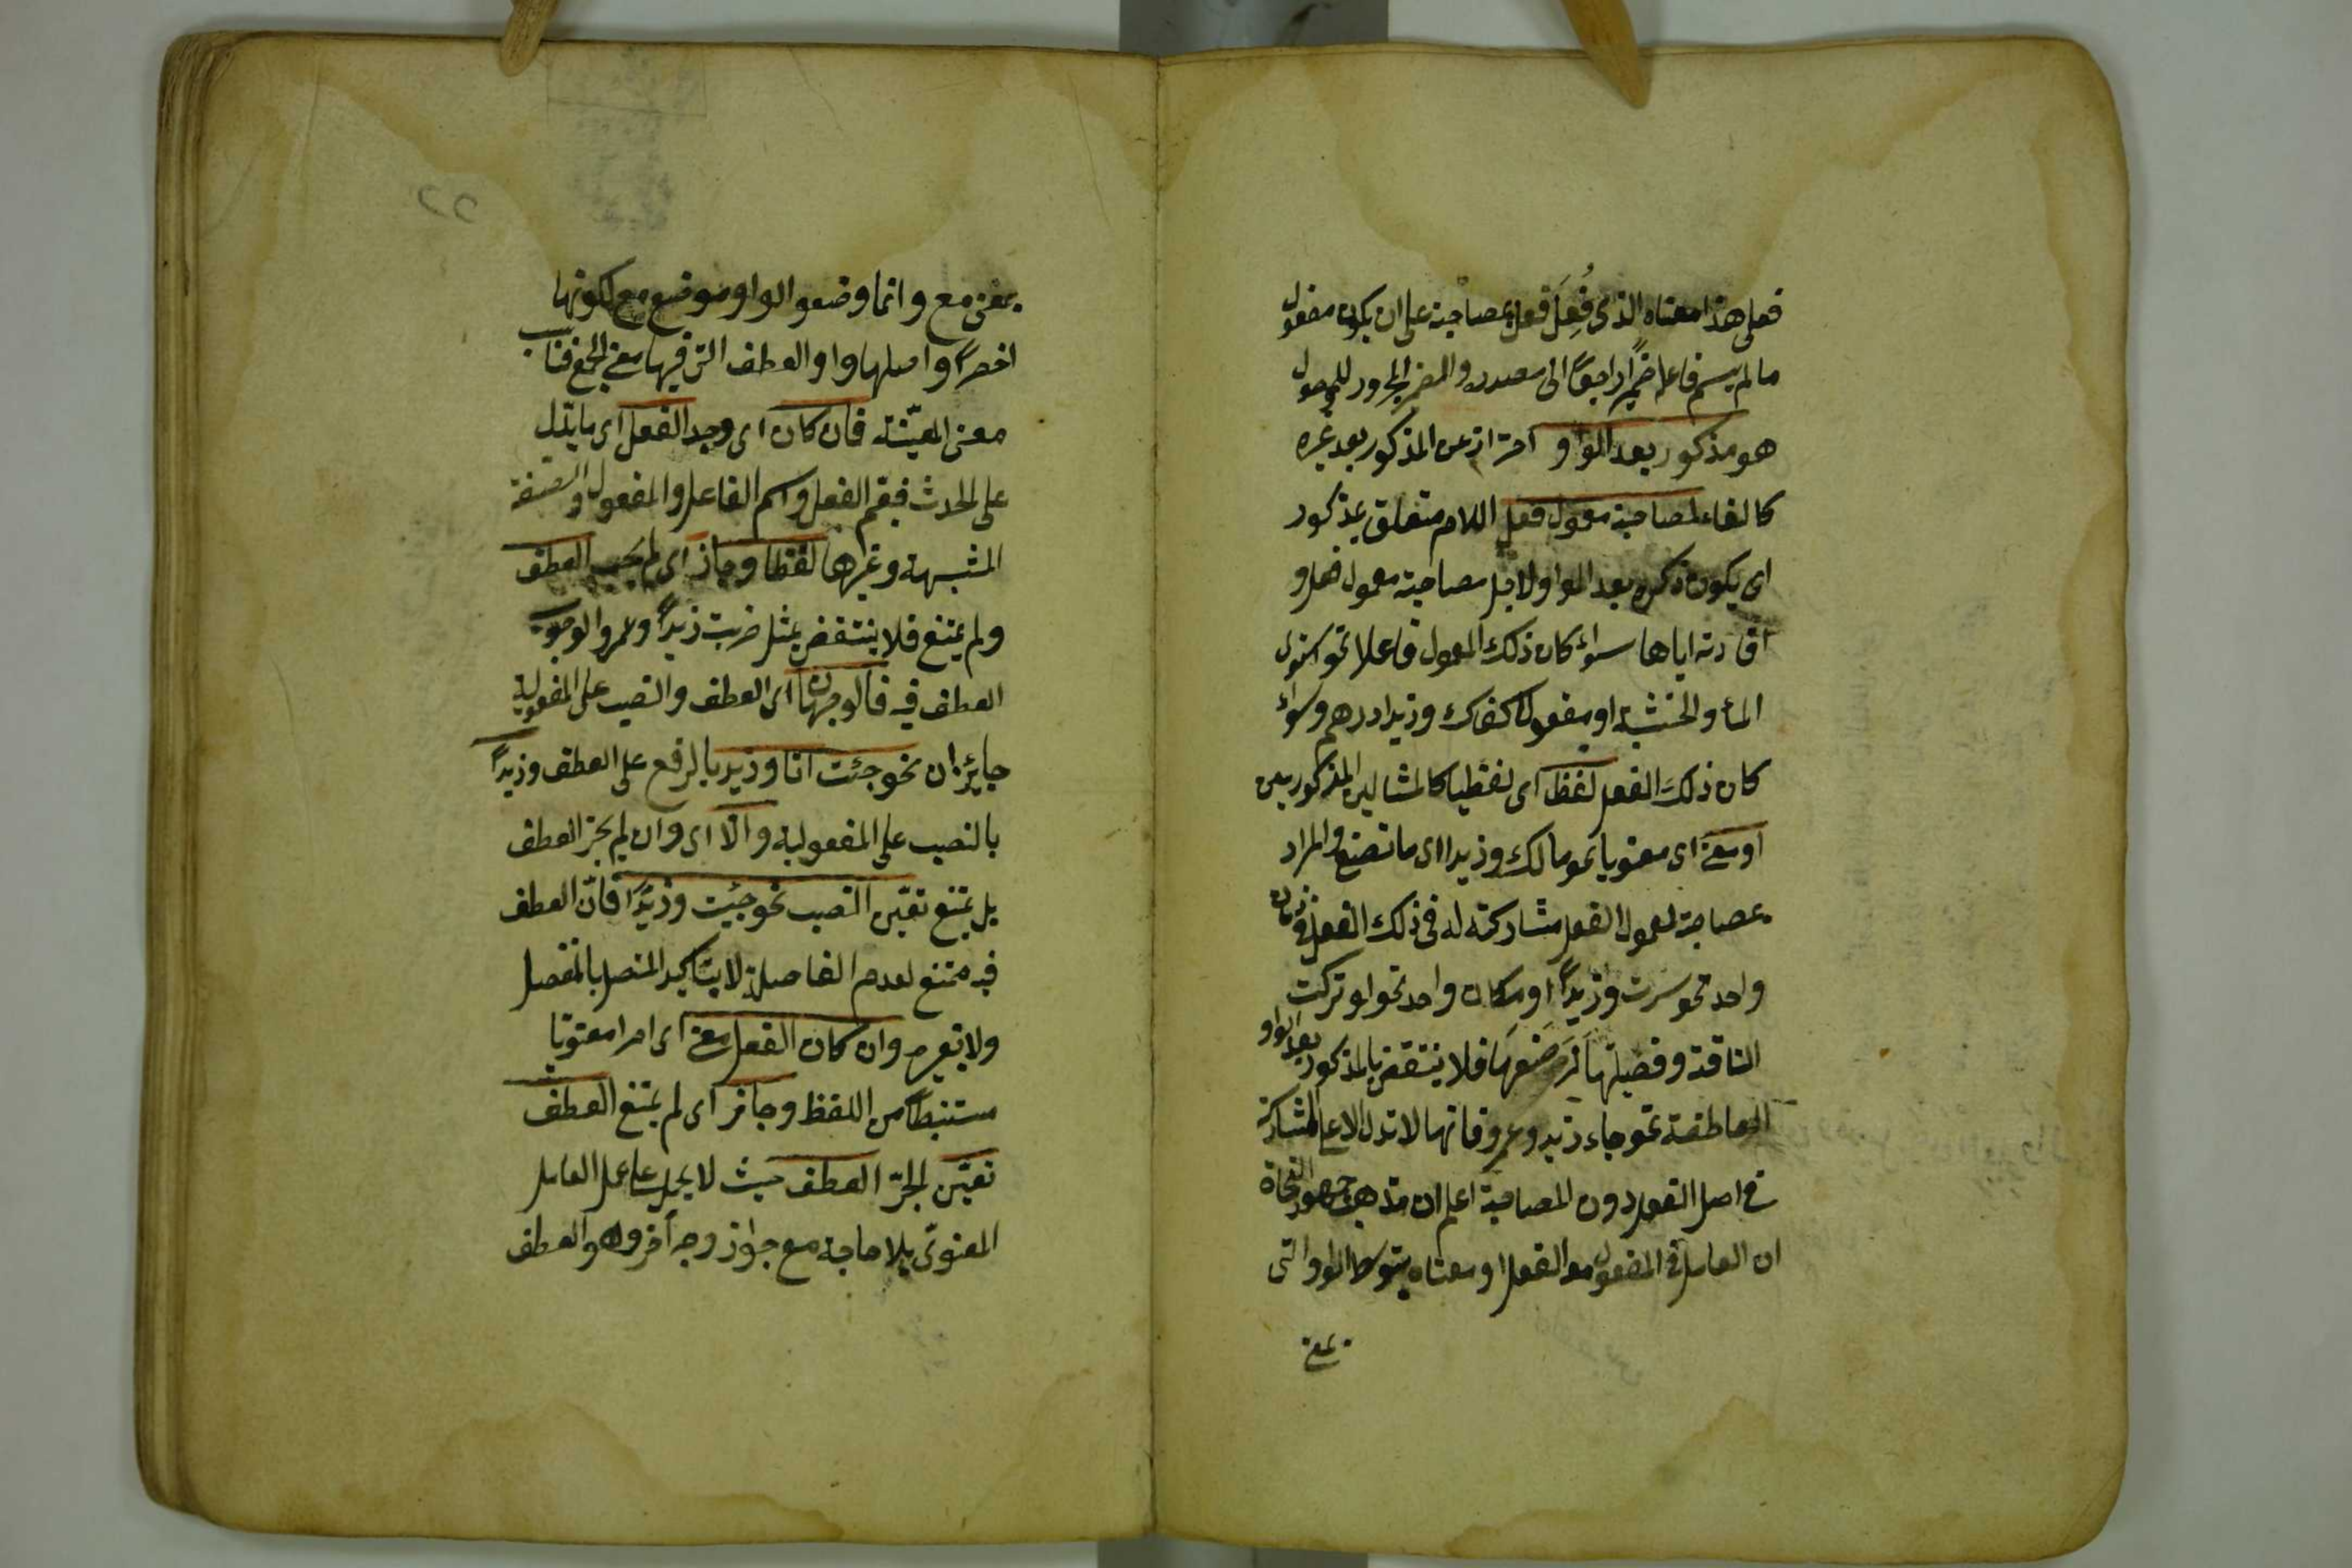 فعلى هذا معناه الذى فُعِلَ فعل بمصاحبة على ان يكون مفعول
ما لم يسم فاعله ضميرا راجعًا الى مصدره والضمير المجرور للموصول
هو مذكور بعد الواو احتراز عن المذكور بعد غيره
كالفاء لمصاحبة معمول فعل اللام متعلق بمذكور
اى يكون ذكره بعد الواو لاجل مصاحبة معمول فعل و
افادته اياها سواء كان ذلك المعمول فاعلا نحو استوى
الماء والخشبة او مفعولا كفاك وزيدا درهم وسواء
كان ذلك الفعل لفظا اى لفظيا كالمثالين المذكورين
او معنى اى معنويا نحو مالك وزيدا اى ما تصنع والمراد
بمصاحبة لمعمول الفعل مشاركته له فى ذلك الفعل فى زمان
واحد نحو سرت وزيدًا او مكان واحد نحو لو تركت
الناقة وفصيلتها لرضعها فلا ينتقض بالمذكور بعد الواو
العاطفة نحو جاء زيد وعمرو فانها لا تدل الا على المشاركة
فى اصل الفعل دون المصاحبة اعلم ان مذهب جمهور النحاة
ان العامل فى المفعول معه الفعل او معناه بتوسط الواو التى
بمعنى
بمعنى مع وانما وضعوا الواو موضع مع لكونها
اخصر واصلها واو العطف التى فيها معنى الجمع فناسب
معنى المعيّة فان كان اى وجد الفعل اى ما يدل
على الحدث فيعم الفعل واسم الفاعل والمفعول والصفة
المشبهة وغيرها لفظا وجاز اى لم يجب العطف
ولم يمتنع فلا ينتقض بمثل ضربت زيدًا وعمروا لوجوب
العطف فيه فالوجهان اى العطف والنصب على المفعولية
جايزان نحو جئت انا وزيد بالرفع على العطف وزيدًا
بالنصب على المفعولية والّا اى وان لم يجز العطف
بل يمتنع تعيّن النصب نحو جئت وزيدًا فانّ العطف
فيه ممتنع لعدم الفاصلة لا بتاكيد المتصل بالمنفصل
ولا بغيره وان كان الفعل معنى اى امرا معنويا
مستنبطًا من اللفظ وجاز اى لم يمتنع العطف
تعيّن العطف حيث لا يحمل على عمل العامل
المعنوىّ بلا حاجة مع جواز وجه آخر وهو العطف